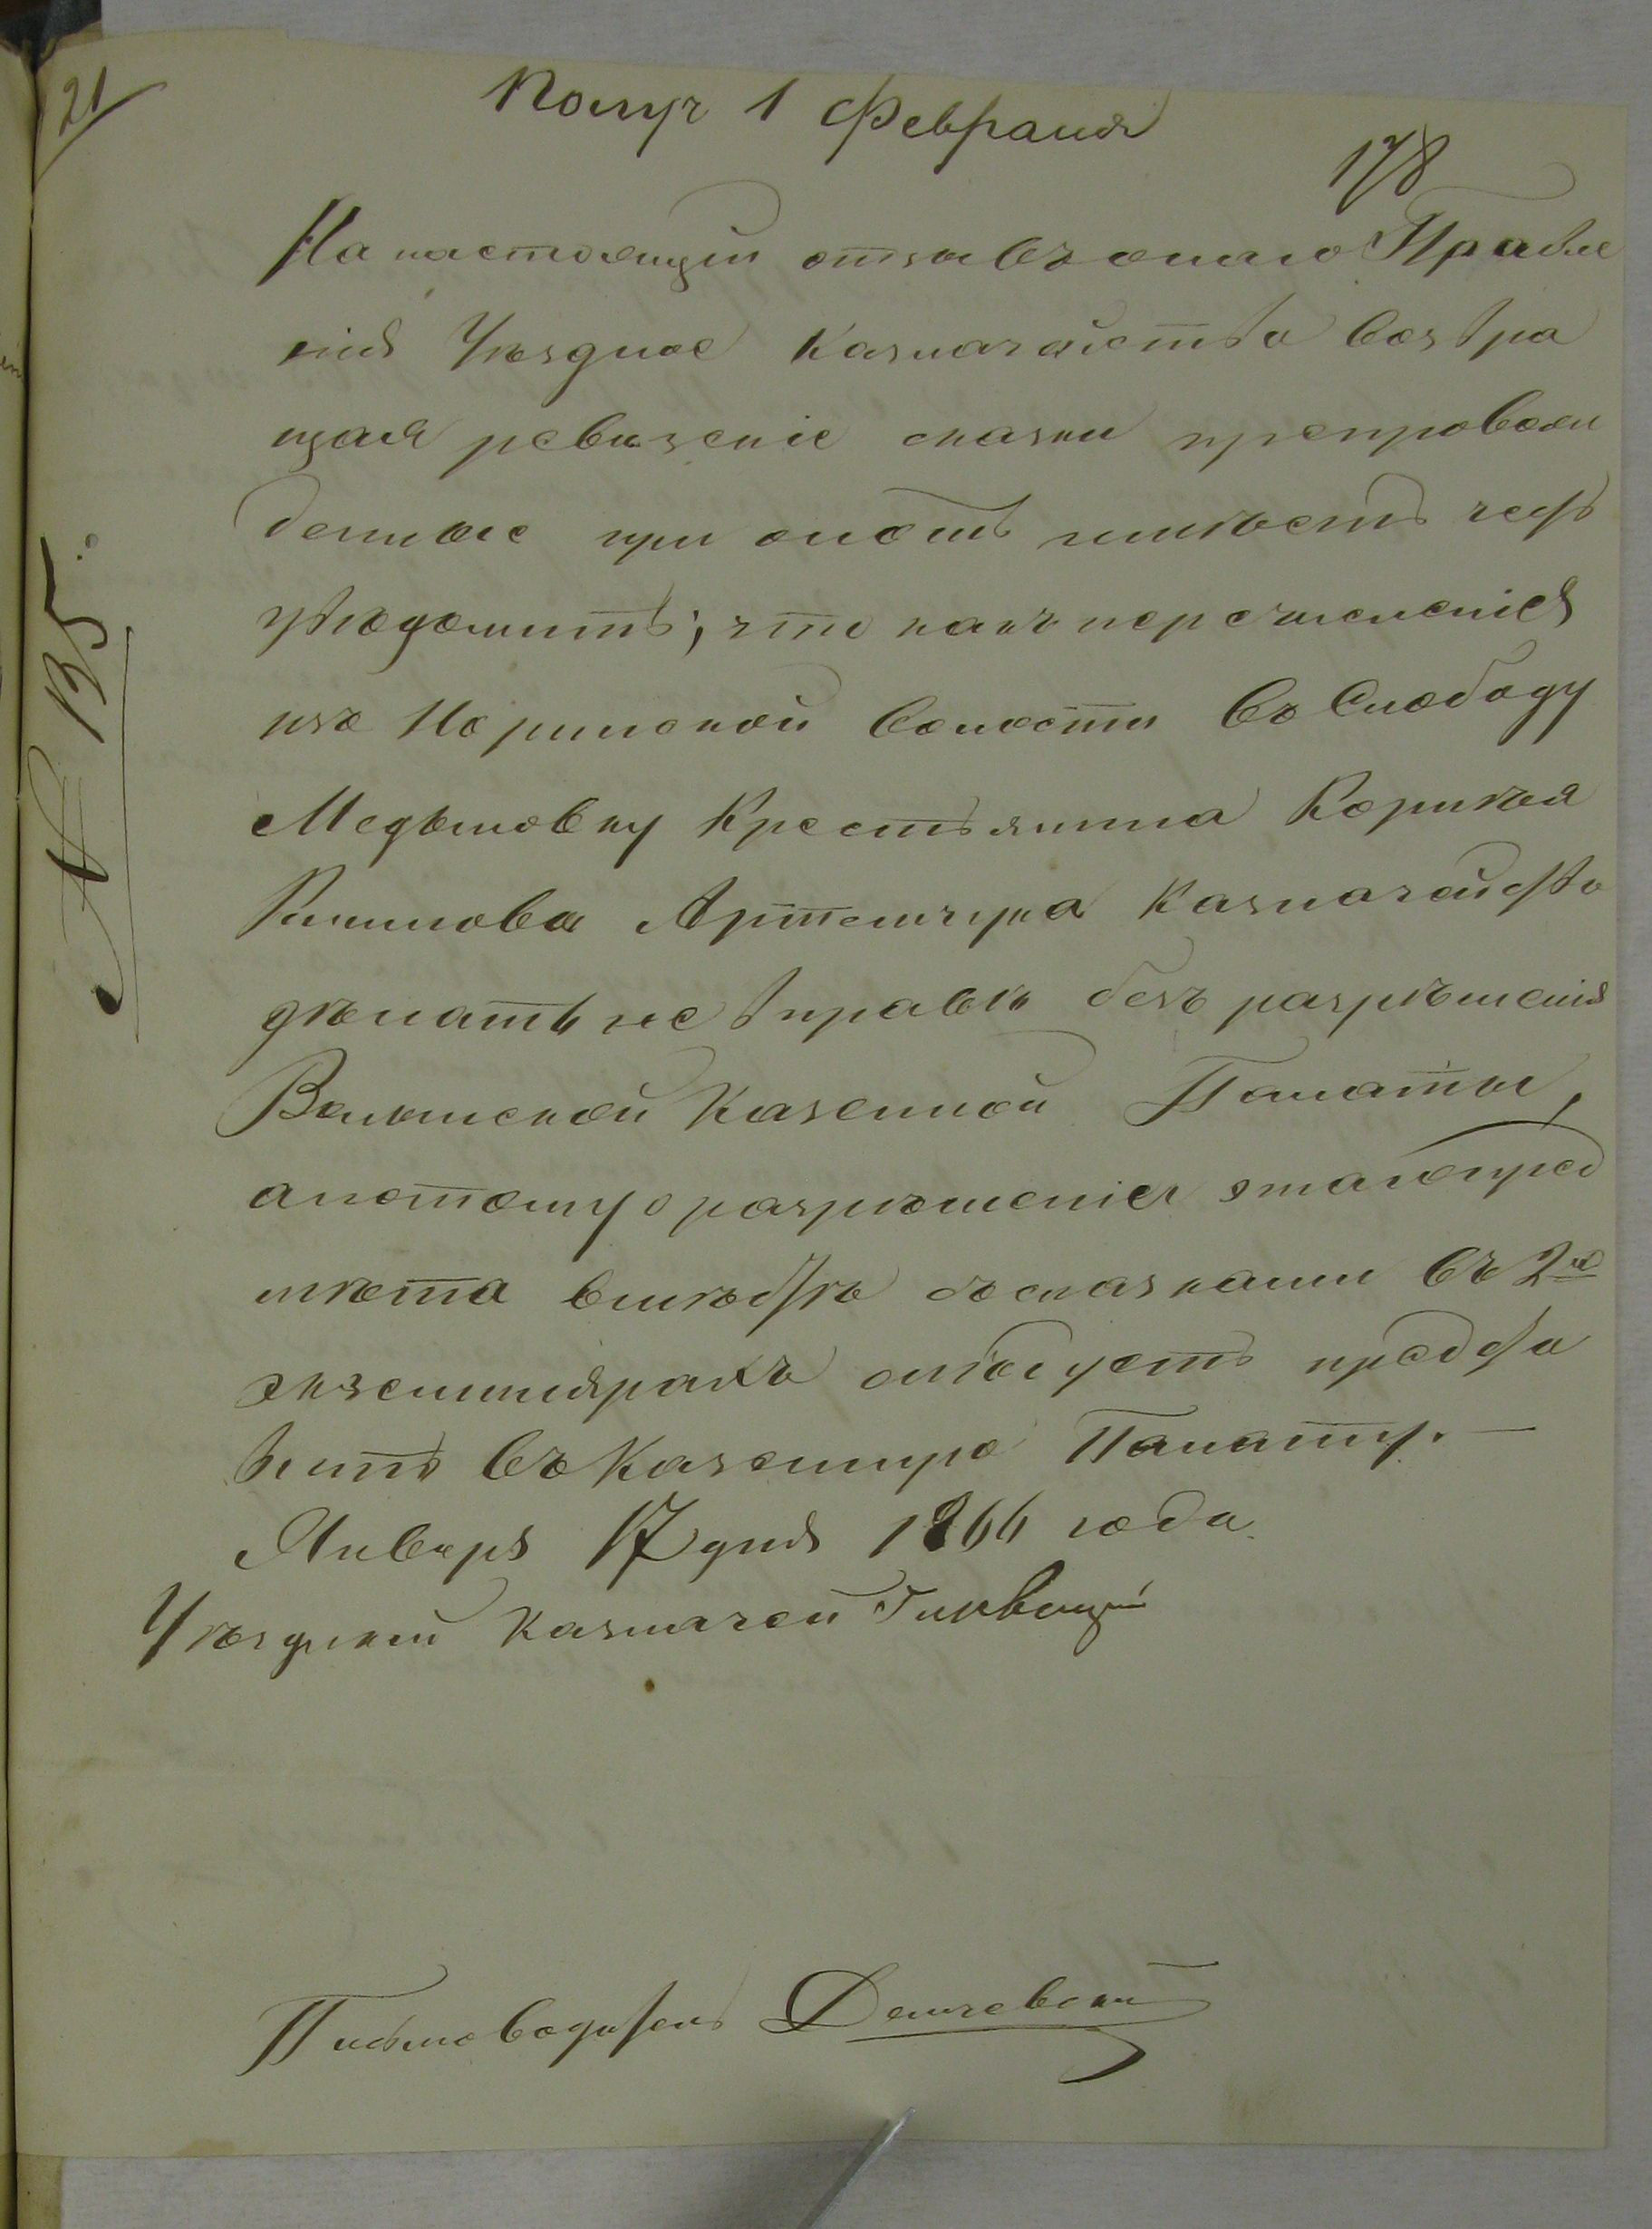 21
Получ 1 Февраля
178
№ 135.
На настоящій отзывъ онаго Правле
нія Уѣздное Казначейство возвра
щая ревизскіе сказки препровож
денные при ономъ имѣетъ честь
увѣдомить, что какъ перечисленія
изъ Норинской волости въ Слободу
Медыновку Крестьянина Корнѣя
Климова Артемчука Казначейство
дѣлать не вправѣ безъ разрѣшенія
Волынской Казенной Палаты,
а потому о разрѣшеніи этаго пред
мѣта вмѣстѣ съ сказками въ 2хъ
экземплярахъ слѣдуетъ предста
вить въ Казенную Палату. —
Январь 17 дня 1866 года.
Уѣздный Казначей
Письмоводитель